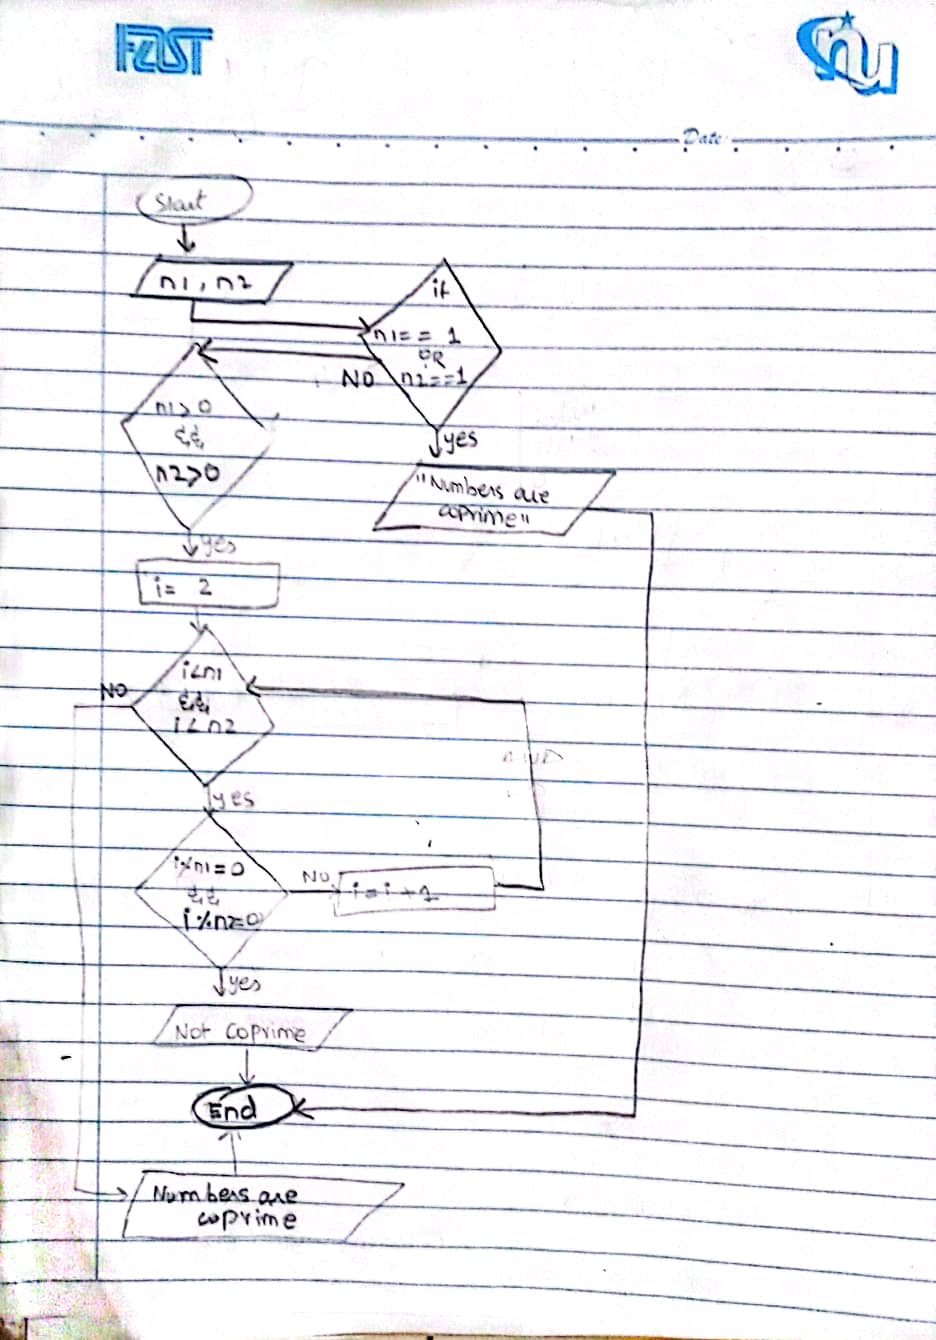 FAST
nu
Date:
Start
n1, n2
if
n1 == 1
OR
n2==1
NO
yes
"Numbers are
coprime"
n1>0
&&
n2>0
yes
i= 2
i<n1
&&
i<n2
NO
yes
i%n1=0
&&
i%n2=0
NO
i=i+1
yes
Not coprime
End
Numbers are
coprime